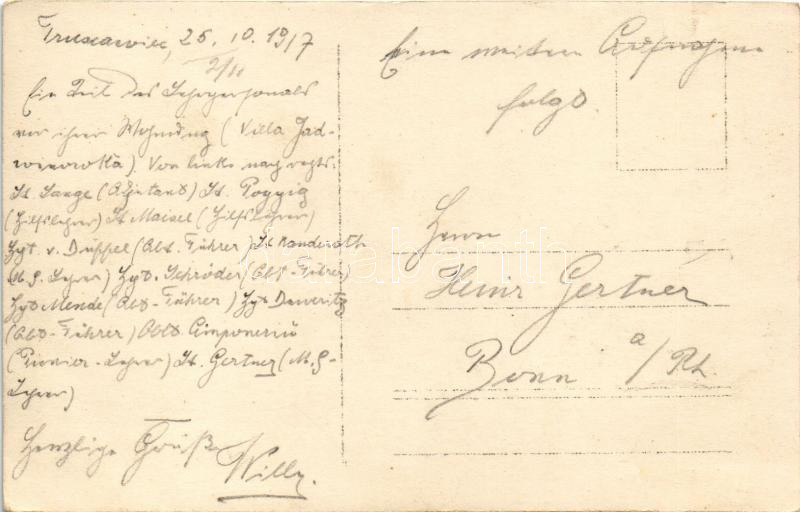 Truscawiec, 26. 10. 1917
2/11
Ein Teil des Lehrpersonals
vor ihrer Wohnung (Villa Jad-
winowka). Von links nach rechts:
Lt. Lange (Adjutant) Lt. Poggig
(Hilfslehrer) Lt Maisel (Hilfslehrer)
Hpt. v. Düffel (Abt. Führer) Lt Kanderoth
(M. G. Lehrer) Hpt. Schröder (Abt. Führer)
Hpt Mende (Abt-Führer) Hpt Deweritz
(Abt-Führer) Oblt
(Pionier-Lehrer) Lt. Gertner (M. G-
Lehrer)
Herzliche Grüße
Willy.
Eine weitere Aufnahme
folgt.
Herrn
Heinr Gertner
Bonn a/Rh.
darabanth